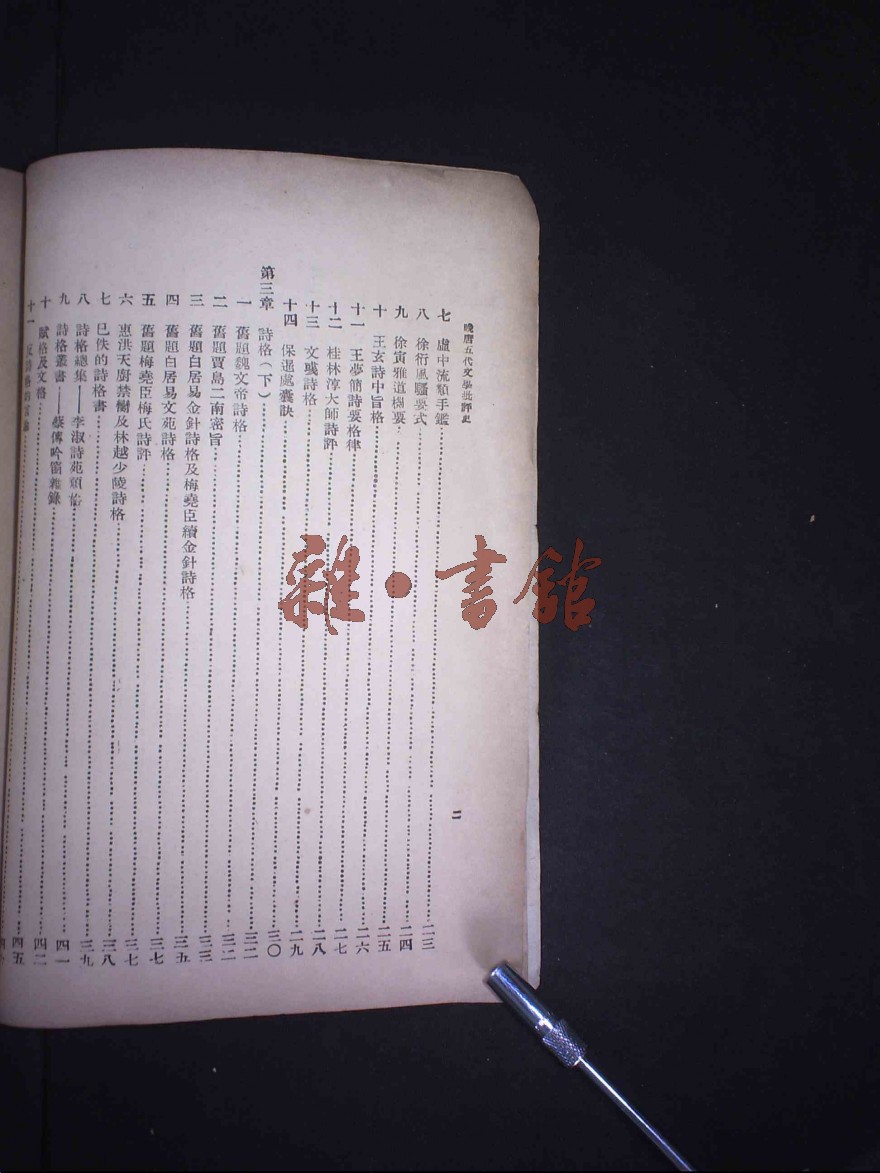 晚唐五代文學批評史
二
七 虛中流類手鑑……二三
八 徐衍風騷要式……二四
九 徐寅雅道機要……二五
十 王玄詩中旨格……二六
十一 王夢簡詩要格律……二七
十二 桂林淳大師詩評……二八
十三 文彧詩格……二九
十四 保暹處囊訣……三〇
第三章 詩格(下)……三二
一 舊題魏文帝詩格……三二
二 舊題賈島二南密旨……三三
三 舊題白居易金針詩格及梅堯臣續金針詩格……三五
四 舊題白居易文苑詩格……三七
五 舊題梅堯臣梅氏詩評……三七
六 惠洪天廚禁臠及林越少陵詩格……三八
七 已佚的詩格書……三九
八 詩格總集——李淑詩苑類格……四一
九 詩格叢書——蔡傳吟窗雜錄……四二
十 賦格及文格……四五
十一 反詩格的言論……
雜·書館